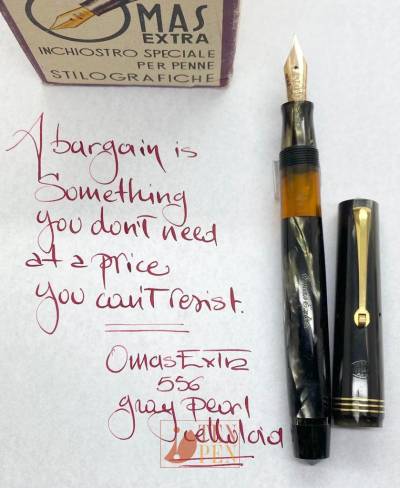 OMAS
EXTRA
INCHIOSTRO SPECIALE
PER PENNE
STILOGRAFICHE
A bargain is
Something
you don't need
at a price
you can't resist.
Omas Extra
556
gray pearl
celluloid
TEN
PEN